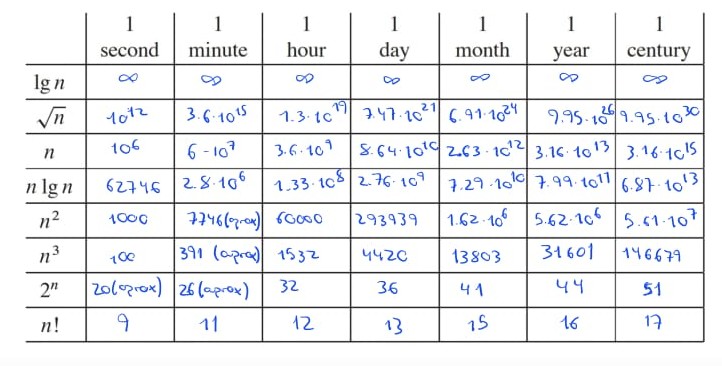 1 1 1 1 1 1 1
second minute hour day month year century
lg n ∞ ∞ ∞ ∞ ∞ ∞ ∞
√n 10^12 3.6·10^15 1.3·10^19 7.47·10^21 6.91·10^24 9.95·10^26 9.95·10^30
n 10^6 6-10^7 3.6·10^9 8.64·10^10 2.63·10^12 3.16·10^13 3.16·10^15
n lg n 62746 2.8·10^6 1.33·10^8 2.76·10^9 7.29·10^10 7.99·10^11 6.87·10^13
n^2 1000 7746(aprox) 60000 293939 1.62·10^6 5.62·10^6 5.61·10^7
n^3 100 391 (aprox) 1532 4420 13803 31601 146679
2^n 20(aprox) 26(aprox) 32 36 41 44 51
n! 9 11 12 13 15 16 17